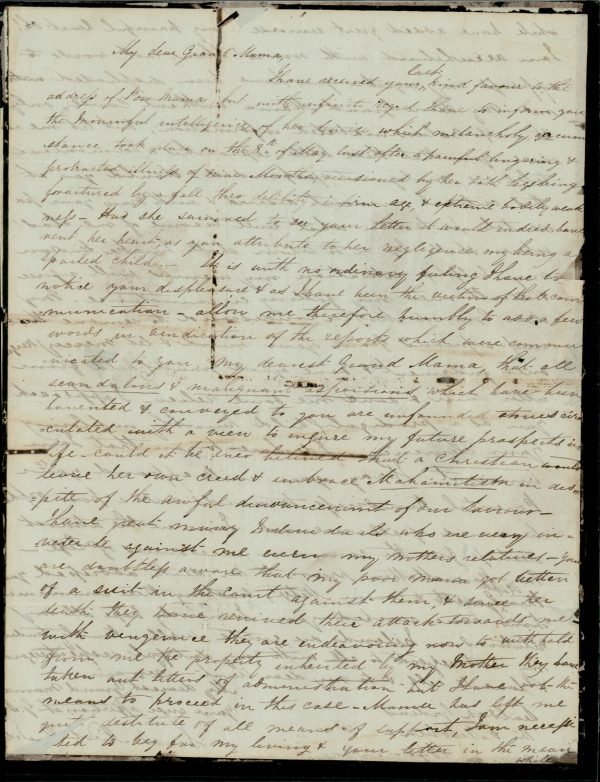 My dear Grand Mama,
last
I have received your kind favour to the
address of Poor Mama but with infinite regard I have to inform you
the Mournful intelligence of her demise which melancholy circum
stance took place on the 8th of May last after a painful lingering &
protracted illness of nine Months occasioned by her both legs being
fractured by a fall thro debility from age, & extreme bodily weak
ness - Had she survived to see your Letter it would indeed have
rent her heart as you attribute to her negligence my being a
spoiled child - It is with no ordinary feeling I have to
notice your displeasure & as I have been the victim of that com
munication - allow me therefore humbly to add a few
words in vindication of the reports which were commu
nicated to you, My dearest Grand Mama, that all
scandalous & malignant aspersions which have been
invented & conveyed to you are unfounded stories cir
culated with a view to injure my future prospects in
life - could it be ever believed that a Christian would
leave her own creed & embrace Mahamitism in des-
pite of the awful denouncement of our Saviour -
I have great many Individuals who are very in-
veterate against me even my mothers relatives - you
are doubtless aware that my poor mama got better
of a suit in the Court against them, & since her
death they have revived their attack towards me
with vengeance they are endeavouring now to withhold
from me the property inherited by my Mother they have
taken out letters of administration but I have not the
means to proceed in this case - Mama has left me
quit destitute of all means of support, I am necessi
ted to beg for my living & your letter in the mean
while